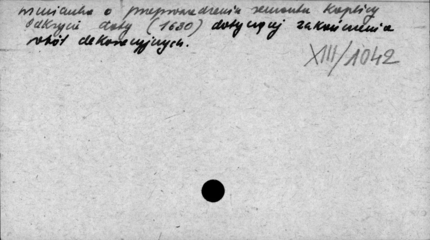 wzmianka o przeprowadzeniu remontu kaplicy
odkrycie daty (1630) dotyczącej zakończenia
robót dekoracyjnych.
XIII/1042